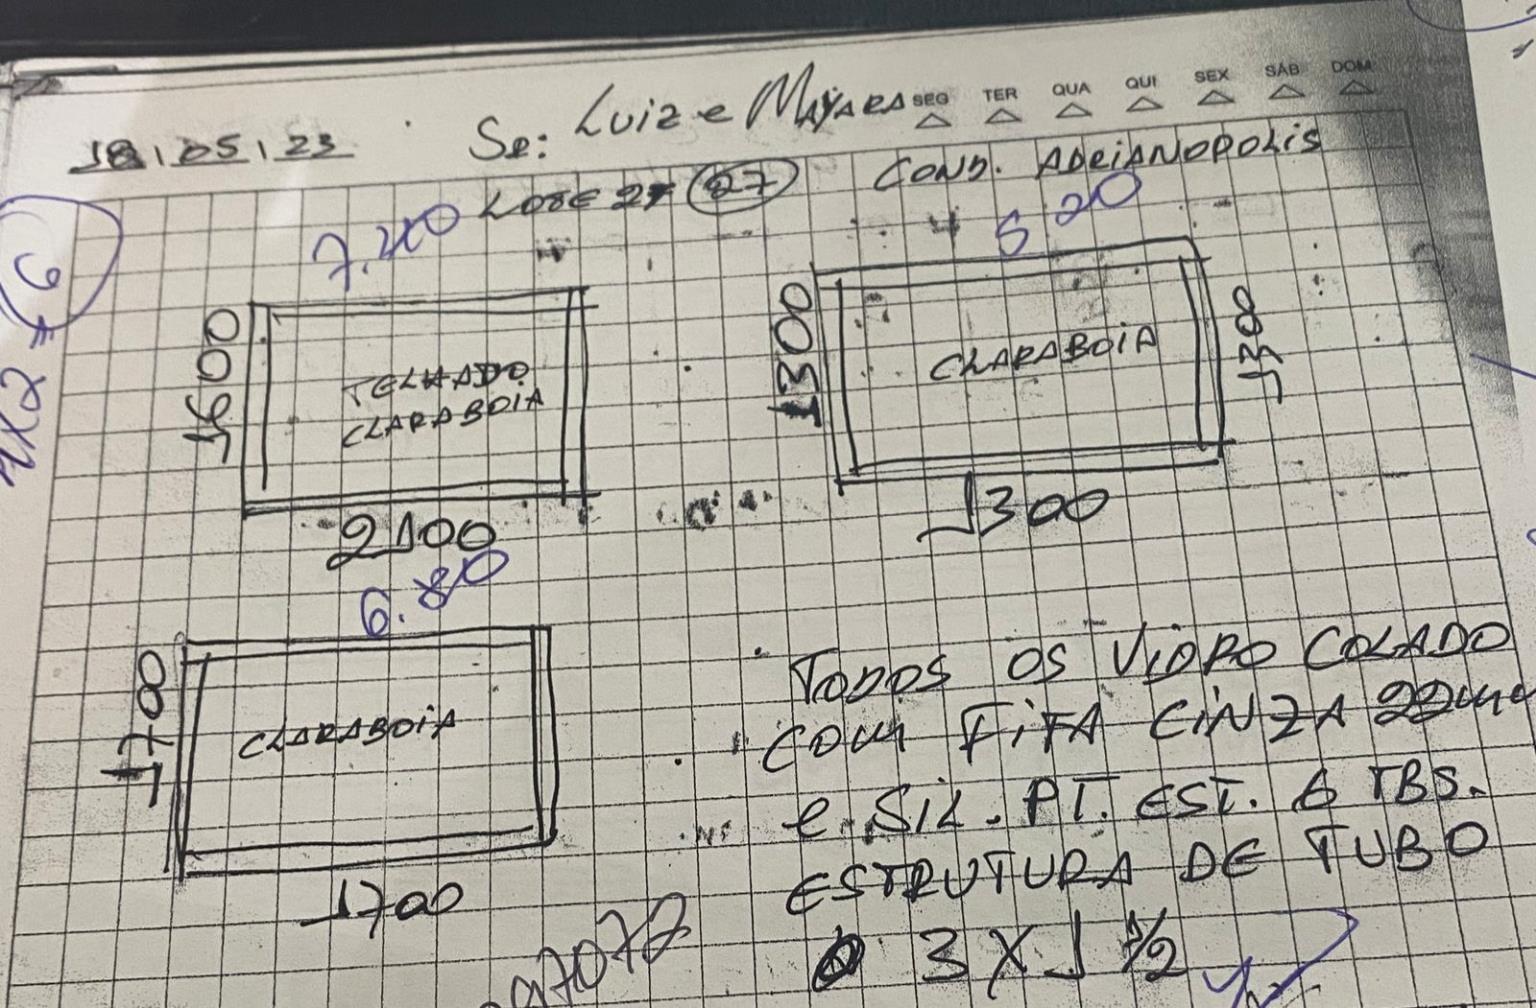 18 05 23 Sr: Luiz e MAYARA SEG TER QUA QUI SEX SÁB DOM
LOTE 27 27 COND. ADRIANOPOLIS
7.40 5 20
1600 TELHADO CLARABOIA
2100
1300 CLARABOIA 1300
1300
6.80
1700 CLARABOIA
1700
TODOS OS VIDRO COLADO
COM FITA CINZA 22mm
e. SIL. PT. EST. 6 TBS.
ESTRUTURA DE TUBO
3 X 1 1/2
97072
1X2 = 6